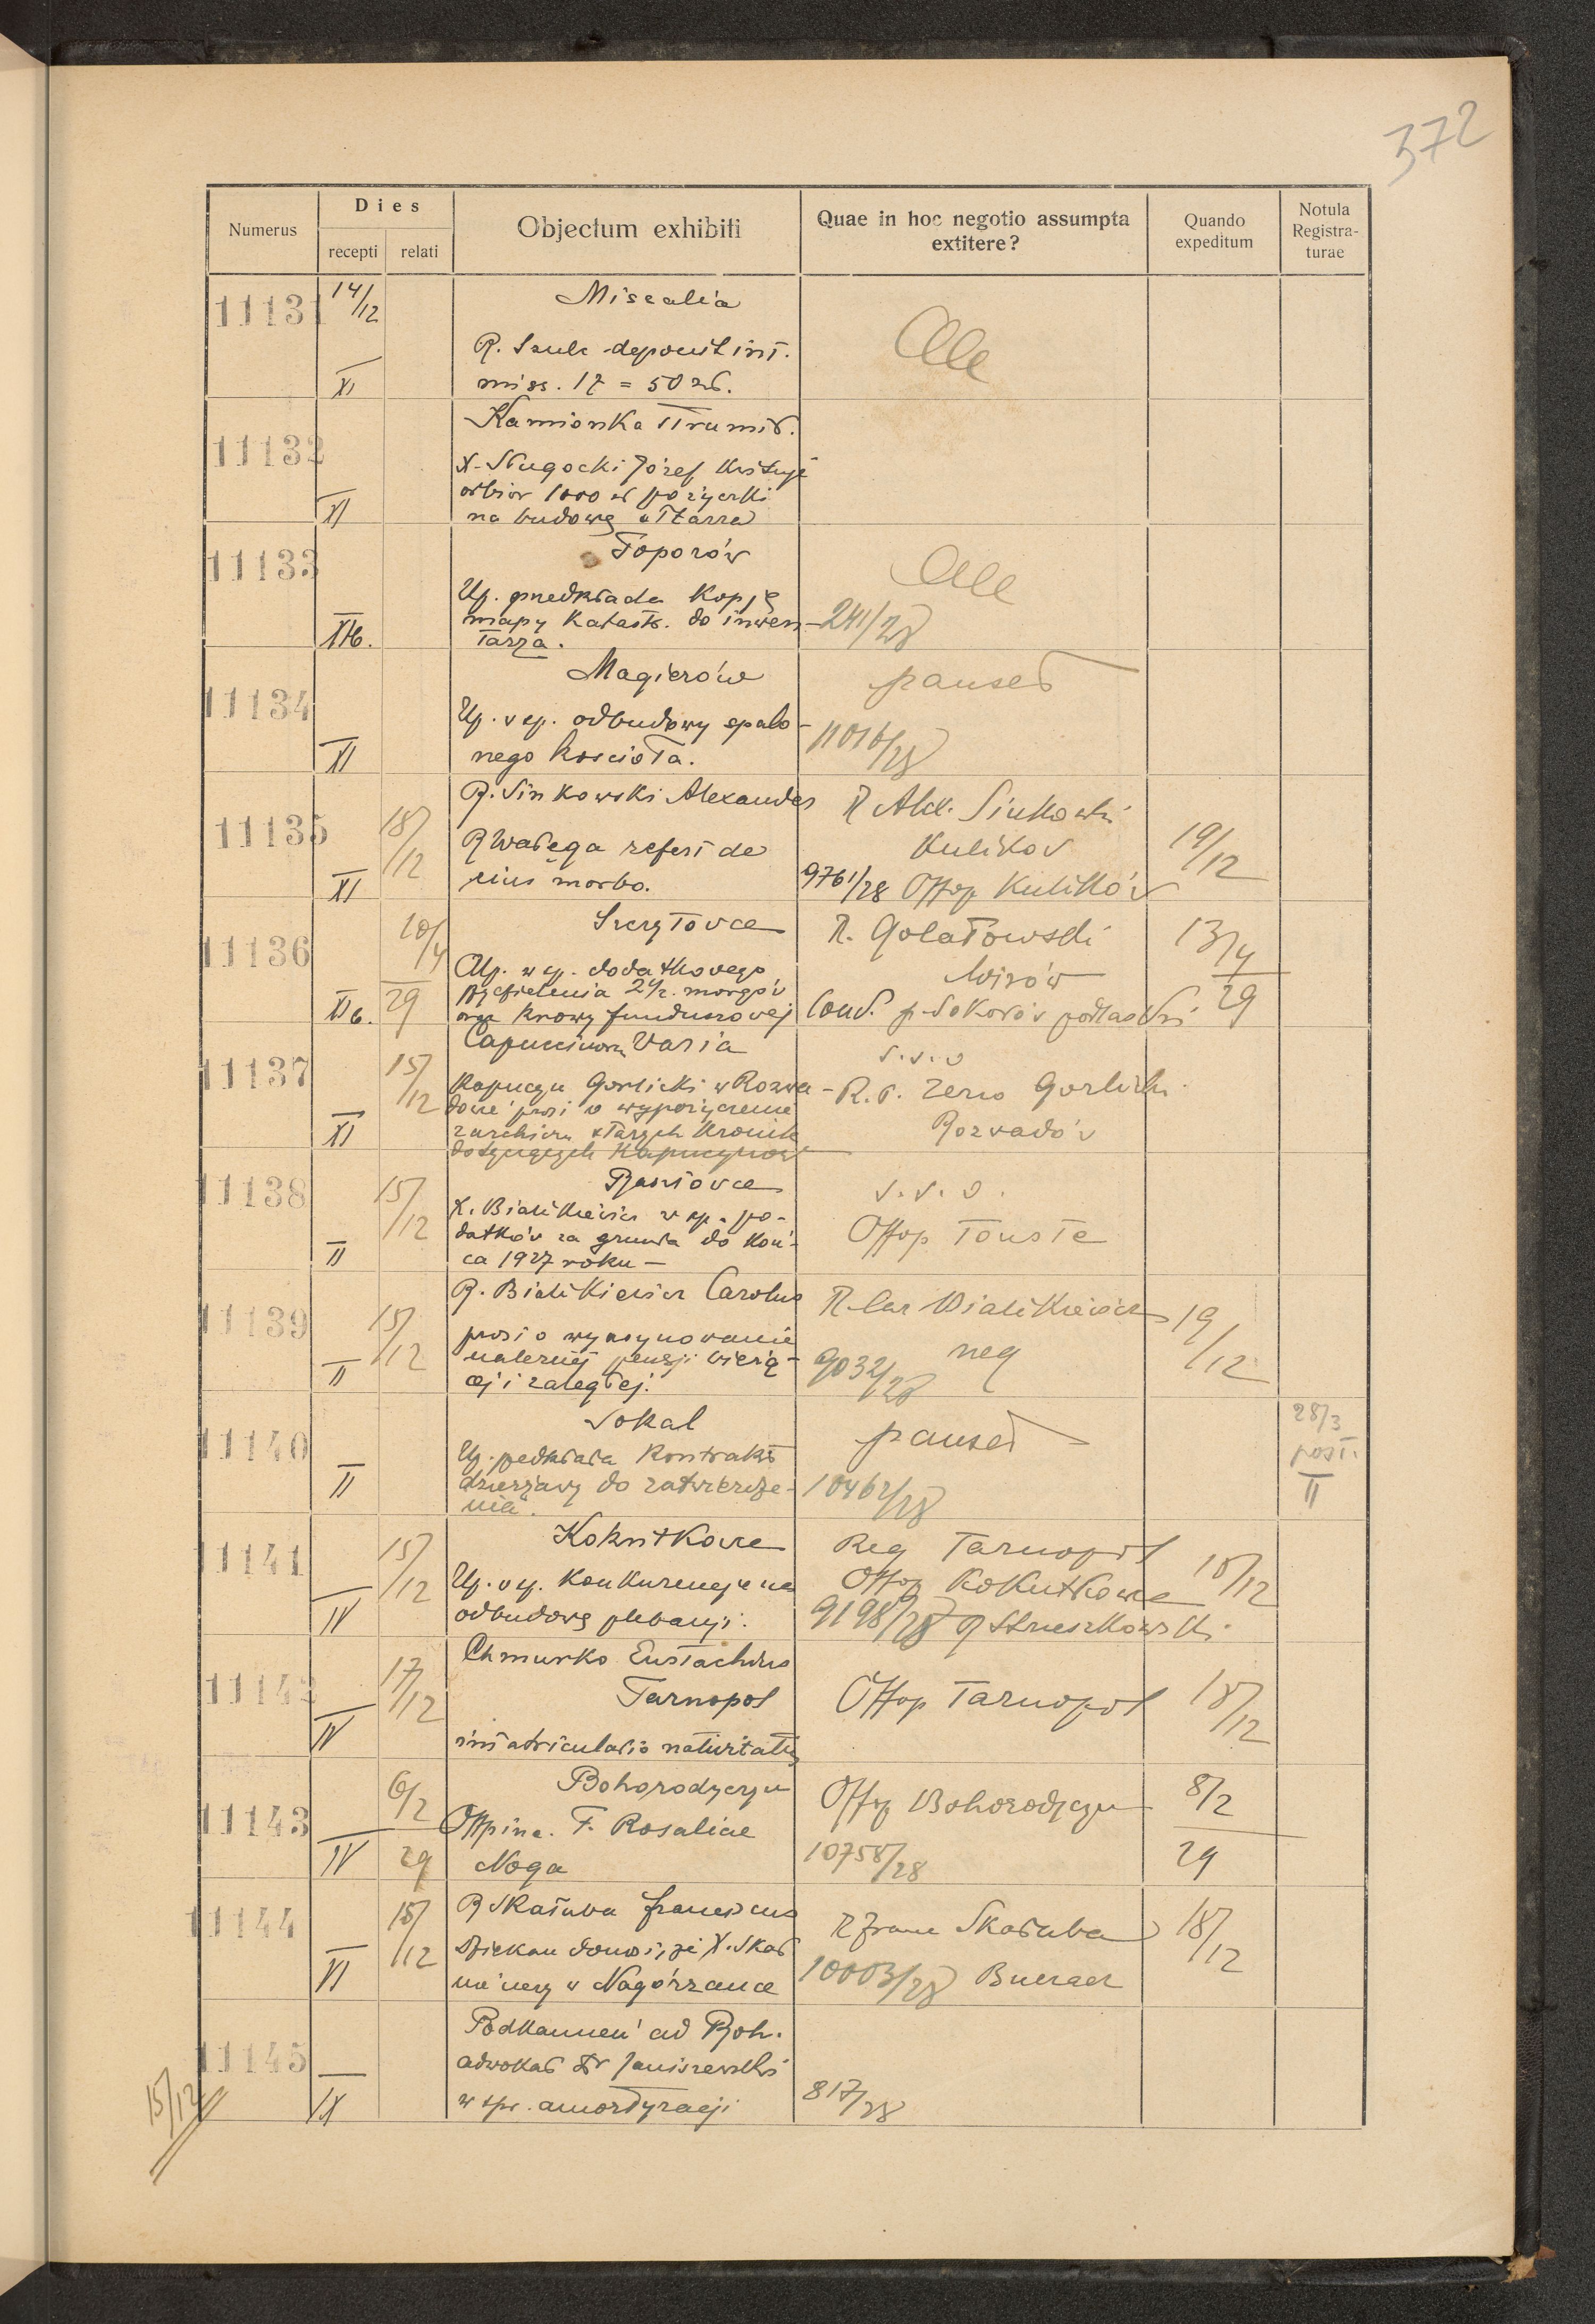 372
Numerus
Dies
recepti relati
Objectum exhibiti
Quae in hoc negotio assumpta
extitere?
Quando
expeditum
Notula
Registra-
turae
11131 14/12
XI
Miscalia
R. deposuit int.
miss. 17 = 50 zł.
11132
XI
Kamionka Strumił.
X. Długocki Józef kwituje
odbiór 1000 zł pożyczki
na budowę ołtarza
11133
XIb.
Toporów
Up. przedkłada kopję
mapy katastr. do inwen-
tarza.
241/28
11134
XI
Magierów
Up. w sp. odbudowy spalo-
nego kościoła.
11016/28
11135
18/12
XI
R. Sinkowski Alexander
R Wałęga refert de
eius morbo.
R Alex. Sinkowski
Kulików
9761/28 Offop Kulików
19/12
11136
10/4
29
XIb.
Up. w sp. dodatkowego
wydzielenia 2 1/2. morgów
oraz krowy funduszowej
R. Gołatowski
Wirów
p. Sokołów podlaski
13/4
29
11137
15/12
XI
Capucinorum Varia
Kapucyn Gorlicki w Rozwa-
dowie prosi o wypożyczenie
z archiwum starych kronik
dotyczących Kapucynów
s.v.o
R. P. Zeno Gorlicki
Rozwadów
11138
15/12
II
X. Białikiewicz w sp. po-
datków za grunta do koń-
ca 1927 roku —
s.v.o.
Offop Touste
11139
15/12
II
R. Białikiewicz Carolus
prosi o wyasygnowanie
należnej pensji bieżą-
cej i zaległej.
R. Car Białikiewicz
neg
9032/28
19/12
11140
II
Sokal
Up. przedkłada kontrakt
dzierżawy do zatwierdze-
nia.
10462/28
28/3
post.
II
11141
15/12
IV
Kokutkowce
Up. w sp. konkurencji na
odbudowę plebanji.
Reg Tarnopol
Offop Kokutkowce
9198/28
18/12
11142
17/12
IV
Chmurko Eustachius
Tarnopol
immatriculatio nativitatis
Offop Tarnopol
18/12
11143
6/2
29
IV
Bohorodyczyn
Rosaliae
Noga
Offop Bohorodyczyn
10758/28
8/2
29
11144
18/12
VI
R Skałuba Franciscus
Dziekan donosi, że X. Skał
w Nagórzance
R Franc Skałuba
10003/28 Buczacz
18/12
11145
IX
Podkamień ad Roh.
adwokat Dr Janiszewski
w spr. amortyzacji
817/28
15/12